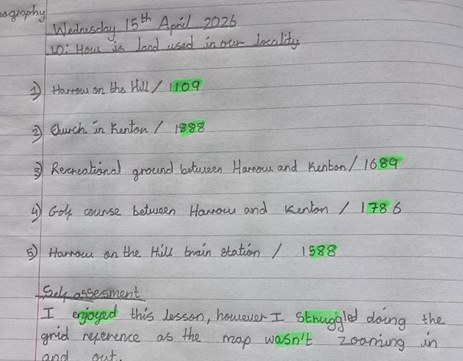 ography
Wednesday 15th April 2026
LO: How is land used in our locality
1) Harrow on the Hill / 1109
2) Church in Kenton / 1888
3) Recreational ground between Harrow and Kenton / 1689
4) Golf course between Harrow and Kenton / 1786
5) Harrow on the Hill train station / 1588
Self assesment
I enjoyed this lesson, however I struggled doing the
grid reference as the map wasn't zooming in
and out.